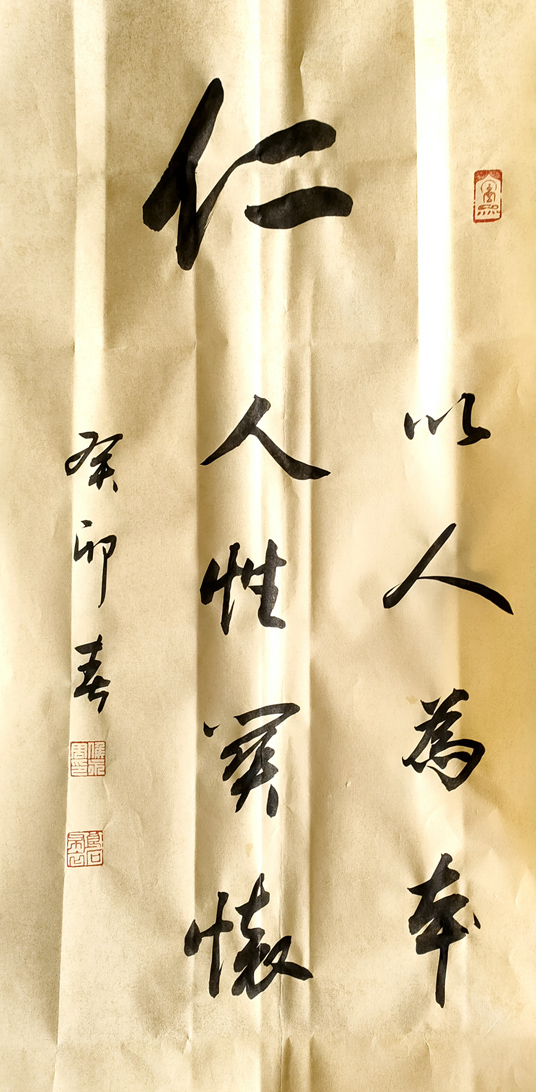 仁
以人為本
人性關懷
癸卯春